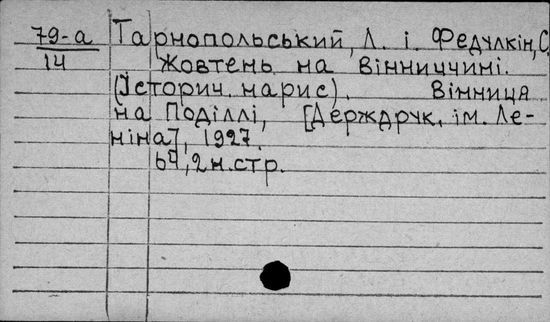 79-а Тарнопольський, Л. і Федулкін, С.
14 Жовтень на Вінниччині.
(Історич. нарис). Вінниця
на Поділлі, [Держдрук. ім. Ле-
ніна], 1927.
67, 2 н. стр.